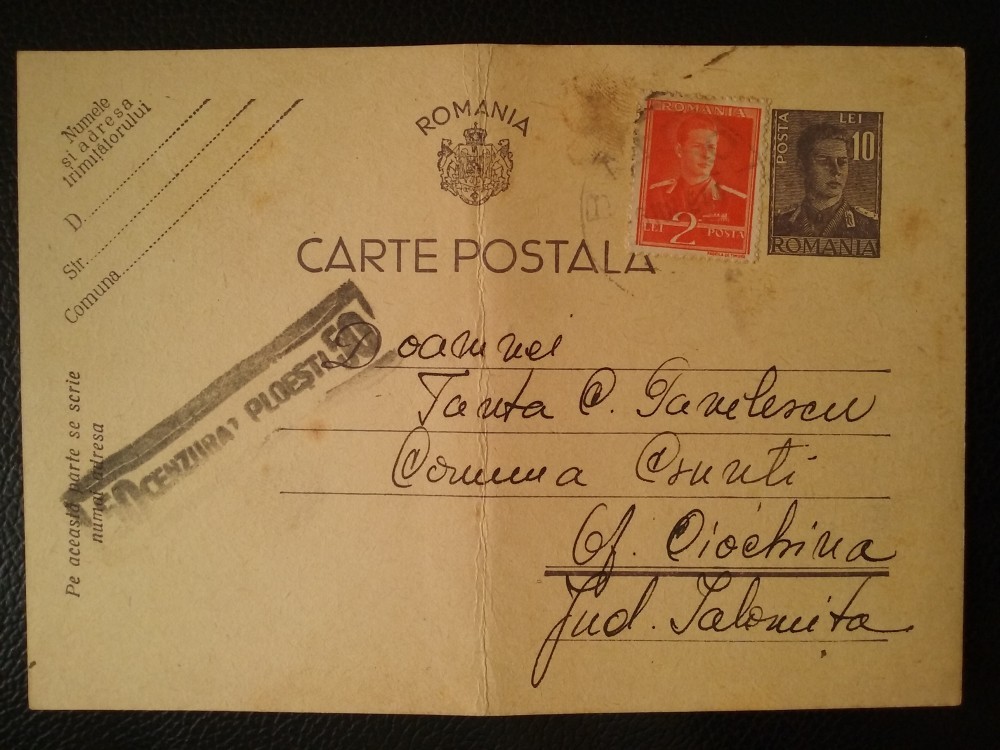 Numele
și adresa
trimițătorului
D.
Str.
Comuna
ROMANIA
CARTE POSTALA
ROMANIA
LEI 2 POSTA
POSTA LEI 10
ROMANIA
CENZURAT PLOEȘTI 50
Pe această parte se scrie
numai adresa
Doamnei
Tanta C. Pavelescu
Comuna
Of. Ciochina
Jud. Ialomita